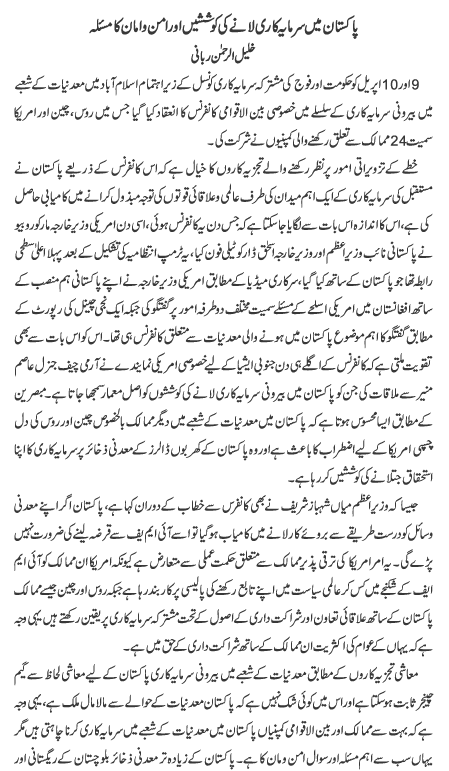 پاکستان میں سرمایہ کاری لانے کی کوششیں اور امن و امان کا مسئلہ
خلیل الرحمٰن ربانی
9 اور 10 اپریل کو حکومت اور فوج کی مشترکہ سرمایہ کاری کونسل کے زیر اہتمام اسلام آباد میں معدنیات کے شعبے
میں بیرونی سرمایہ کاری کے سلسلے میں خصوصی بین الاقوامی کانفرنس کا انعقاد کیا گیا جس میں روس، چین اور امریکا
سمیت 24 ممالک سے تعلق رکھنے والی کمپنیوں نے شرکت کی۔
خطے کے تزویراتی امور پر نظر رکھنے والے تجزیہ کاروں کا خیال ہے کہ اس کانفرنس کے ذریعے پاکستان نے
مستقبل کی سرمایہ کاری کے ایک اہم میدان کی طرف عالمی و علاقائی قوتوں کی توجہ مبذول کرانے میں کامیابی حاصل
کی ہے، اس کا اندازہ اس بات سے لگایا جاسکتا ہے کہ جس دن یہ کانفرنس ہوئی، اسی دن امریکی وزیر خارجہ مارکو روبیو
نے پاکستانی نائب وزیراعظم اور وزیر خارجہ اسحٰق ڈار کو ٹیلی فون کیا، یہ ٹرمپ انتظامیہ کی تشکیل کے بعد پہلا اعلیٰ سطحی
رابطہ تھا جو پاکستان کے ساتھ کیا گیا، سرکاری میڈیا کے مطابق امریکی وزیر خارجہ نے اپنے پاکستانی ہم منصب کے
ساتھ افغانستان میں امریکی اسلحے کے مسئلے سمیت مختلف دو طرفہ امور پر گفتگو کی جبکہ ایک نجی چینل کی رپورٹ کے
مطابق گفتگو کا اہم موضوع پاکستان میں ہونے والی معدنیات سے متعلق کانفرنس ہی تھا۔ اس کو اس بات سے بھی
تقویت ملتی ہے کہ کانفرنس کے اگلے ہی دن جنوبی ایشیا کے لیے خصوصی امریکی نمایندے نے آرمی چیف جنرل عاصم
منیر سے ملاقات کی جن کو پاکستان میں بیرونی سرمایہ کاری لانے کی کوششوں کو اصل معمار سمجھا جاتا ہے۔ مبصرین
کے مطابق ایسا محسوس ہوتا ہے کہ پاکستان میں معدنیات کے شعبے میں دیگر ممالک بالخصوص چین اور روس کی دل
چسپی امریکا کے لیے اضطراب کا باعث ہے اور وہ پاکستان کے کھربوں ڈالرز کے معدنی ذخائر پر سرمایہ کاری کا اپنا
استحقاق جتلانے کی کوششیں کر رہا ہے۔
جیسا کہ وزیر اعظم میاں شہباز شریف نے بھی کانفرنس سے خطاب کے دوران کہا ہے، پاکستان اگر اپنے معدنی
وسائل کو درست طریقے سے بروئے کار لانے میں کامیاب ہوگیا تو اسے آئی ایم ایف سے قرضہ لینے کی ضرورت نہیں
پڑے گی۔ یہ امر امریکا کی ترقی پذیر ممالک سے متعلق حکمت عملی سے متعارض ہے کیونکہ امریکا ان ممالک کو آئی ایم
ایف کے شکنجے میں کس کر عالمی سیاست میں اپنے تابع رکھنے کی پالیسی پر کاربند رہا ہے جبکہ روس اور چین جیسے ممالک
پاکستان کے ساتھ علاقائی تعاون اور شراکت داری کے اصول کے تحت مشترکہ سرمایہ کاری پر یقین رکھتے ہیں یہی وجہ
ہے کہ یہاں کے عوام کی اکثریت ان ممالک کے ساتھ شراکت داری کے حق میں ہے۔
معاشی تجزیہ کاروں کے مطابق معدنیات کے شعبے میں بیرونی سرمایہ کاری پاکستان کے لیے معاشی لحاظ سے گیم
چینجر ثابت ہوسکتا ہے اور اس میں کوئی شک نہیں ہے کہ پاکستان معدنیات کے حوالے سے مالامال ملک ہے، یہی وجہ
ہے کہ بہت سے ممالک اور بین الاقوامی کمپنیاں پاکستان میں معدنیات کے شعبے میں سرمایہ کاری کرنا چاہتی ہیں مگر
یہاں سب سے اہم مسئلہ اور سوال امن و امان کا ہے۔ پاکستان کے زیادہ تر معدنی ذخائر بلوچستان کے ریگستانی اور